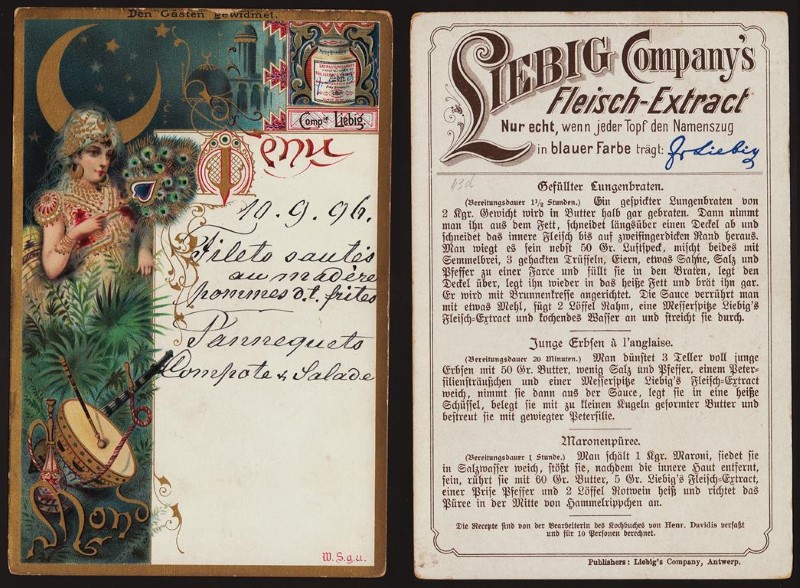 Den Gästen gewidmet.
Compie Liebig
Menu
10. 9. 96.
Filets sautés
au madère
pommes d. t. frites
Pannequets
Compote & Salade
Mond
W. S. g. u.
LIEBIG Company's
Fleisch-Extract
Nur echt, wenn jeder Topf den Namenszug
in blauer Farbe trägt: JvLiebig
63d
Gefüllter Lungenbraten.
(Bereitungsdauer 1½ Stunden.) Ein gespickter Lungenbraten von
2 Kgr. Gewicht wird in Butter halb gar gebraten. Dann nimmt
man ihn aus dem Fett, schneidet längsüber einen Deckel ab und
schneidet das innere Fleisch bis auf zweifingerdicken Rand heraus.
Man wiegt es sein nebst 50 Gr. Luftspeck, mischt beides mit
Semmelbrei, 3 gehackten Trüffeln, Eiern, etwas Sahne, Salz und
Pfeffer zu einer Farce und füllt sie in den Braten, legt den
Deckel über, legt ihn wieder in das heiße Fett und brät ihn gar.
Er wird mit Brunnenkresse angerichtet. Die Sauce verrührt man
mit etwas Mehl, fügt 2 Löffel Rahm, eine Messerspitze Liebig's
Fleisch-Extract und kochendes Wasser an und streicht sie durch.
Junge Erbsen à l'anglaise.
(Bereitungsdauer 20 Minuten.) Man dünstet 3 Teller voll junge
Erbsen mit 50 Gr. Butter, wenig Salz und Pfeffer, einem Peter-
siliensträußchen und einer Messerspitze Liebig's Fleisch-Extract
weich, nimmt sie dann aus der Sauce, legt sie in eine heiße
Schüssel, belegt sie mit zu kleinen Kugeln geformter Butter und
bestreut sie mit gewiegter Petersilie.
Maronenpüree.
(Bereitungsdauer 1 Stunde.) Man schält 1 Kgr. Maroni, siedet sie
in Salzwasser weich, stößt sie, nachdem die innere Haut entfernt,
fein, rührt sie mit 60 Gr. Butter, 5 Gr. Liebig's Fleisch-Extract,
einer Prise Pfeffer und 2 Löffel Rotwein heiß und richtet das
Püree in der Mitte von Hammelrippchen an.
Die Recepte sind von der Bearbeiterin des Kochbuches von Henr. Davidis verfaßt
und für 10 Personen berechnet.
Publishers: Liebig's Company, Antwerp.